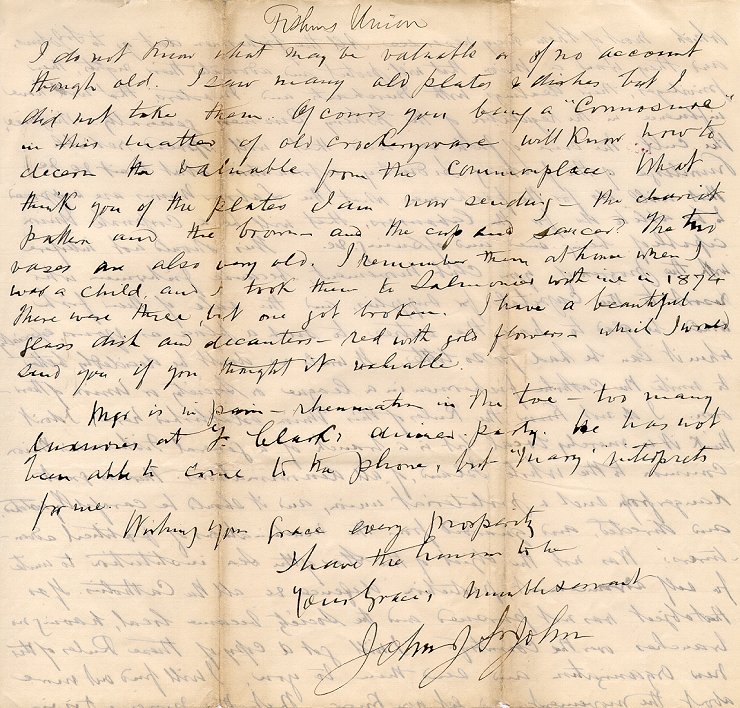 Fishers Union
I do not know what may be valuable or of no account
though old. I saw many old plates & dishes but I
did not take them Of cours you being a "Connosure"
in this matter of old crockeryware will Know how to
decern the valuable from the commonplace. What
think you of the plates I am now sending - the chariot
pattern and the brown - and the cup and saucer? The two
vases are also very old. I remember them at home when I
was a child, and I took them to Salmonier with me in 1874
There were three, but one got broken. I have a beautiful
glass dish and decanters - red with gold flowers - which I would
send you if you thought it valuable.
Mgr is in pain - rheumatism in the toe - too many
luxuries at J Clark's dinner party. he has not
been able to come to the phone, but "Mary" interprets
for me.
Wishing your Grace every prosperity
I have the honour to be
Your Grace's humble servant
John J St John